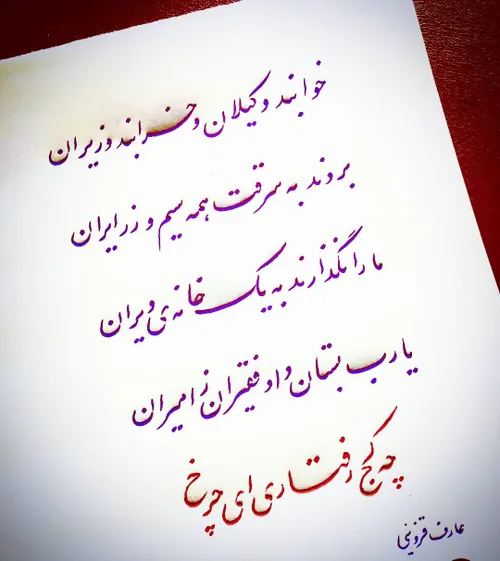 خوابند وکیلان و خرابند وزیران
بردند به سرقت همه سیم و زر ایران
ما را نگذارند به یک خانه‌ی ویران
یارب بستان داد فقیران ز امیران
چه کج رفتاری ای چرخ
عارف قزوینی